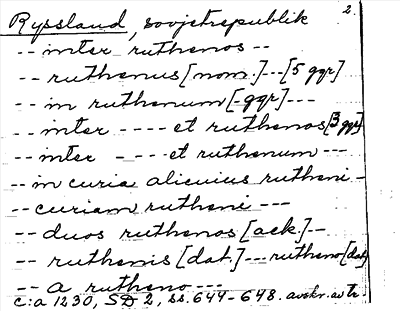 Ryssland, sovjetrepublik 2.
-- inter ruthenos --
-- ruthenus [nom.] -- [5 ggr]
-- in ruthenum [-ggr] ---
-- inter ---- et ruthenos [3 ggr]
-- inter ---- et ruthenum ---
-- in curia alicuius rutheni -
-- curiam rutheni ---
-- duos ruthenos [ack.] --
-- ruthenis [dat.] --- rutheno [dat]
-- a rutheno ---
c:a 1230, SD 2, ss. 644-648. avskr. av tr.